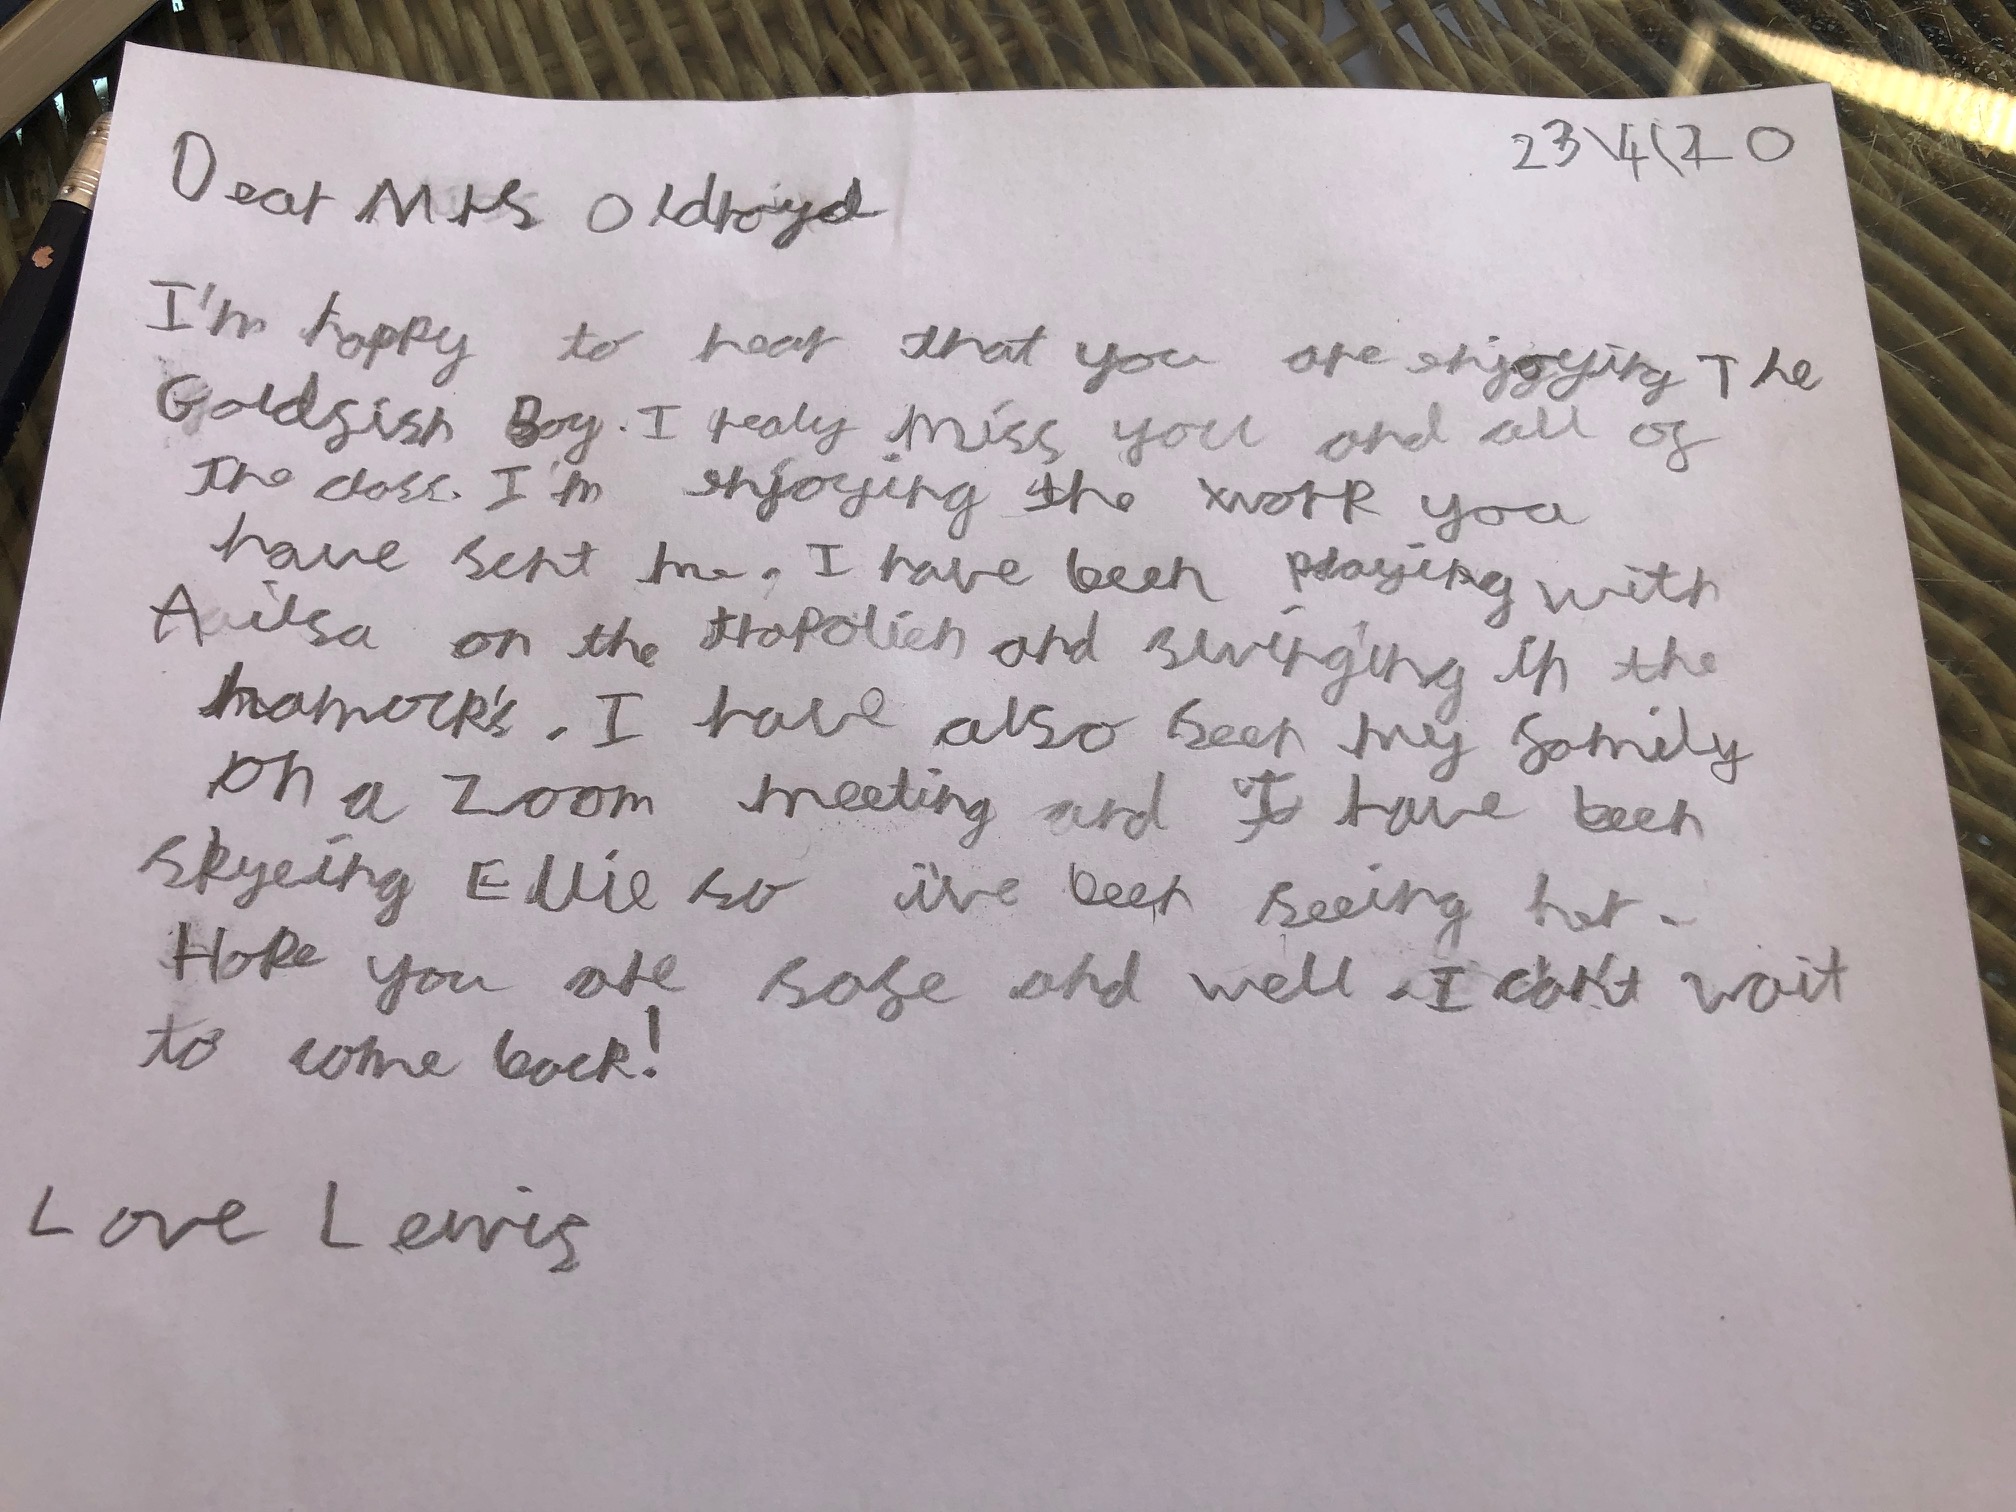 23\4\20
Dear Mrs Oldroyd
I'm happy to hear that you are enjoying The
Goldfish Boy. I realy miss you and all of
the class. I'm enjoying the work you
have sent me. I have been playing with
Ailsa on the trapolien and swinging in the
hamock's. I have also seen my family
on a Zoom meeting and I have been
skyeing Ellie so i've been seeing her.
Hope you are safe and well. I can't wait
to come back!
Love Lewis